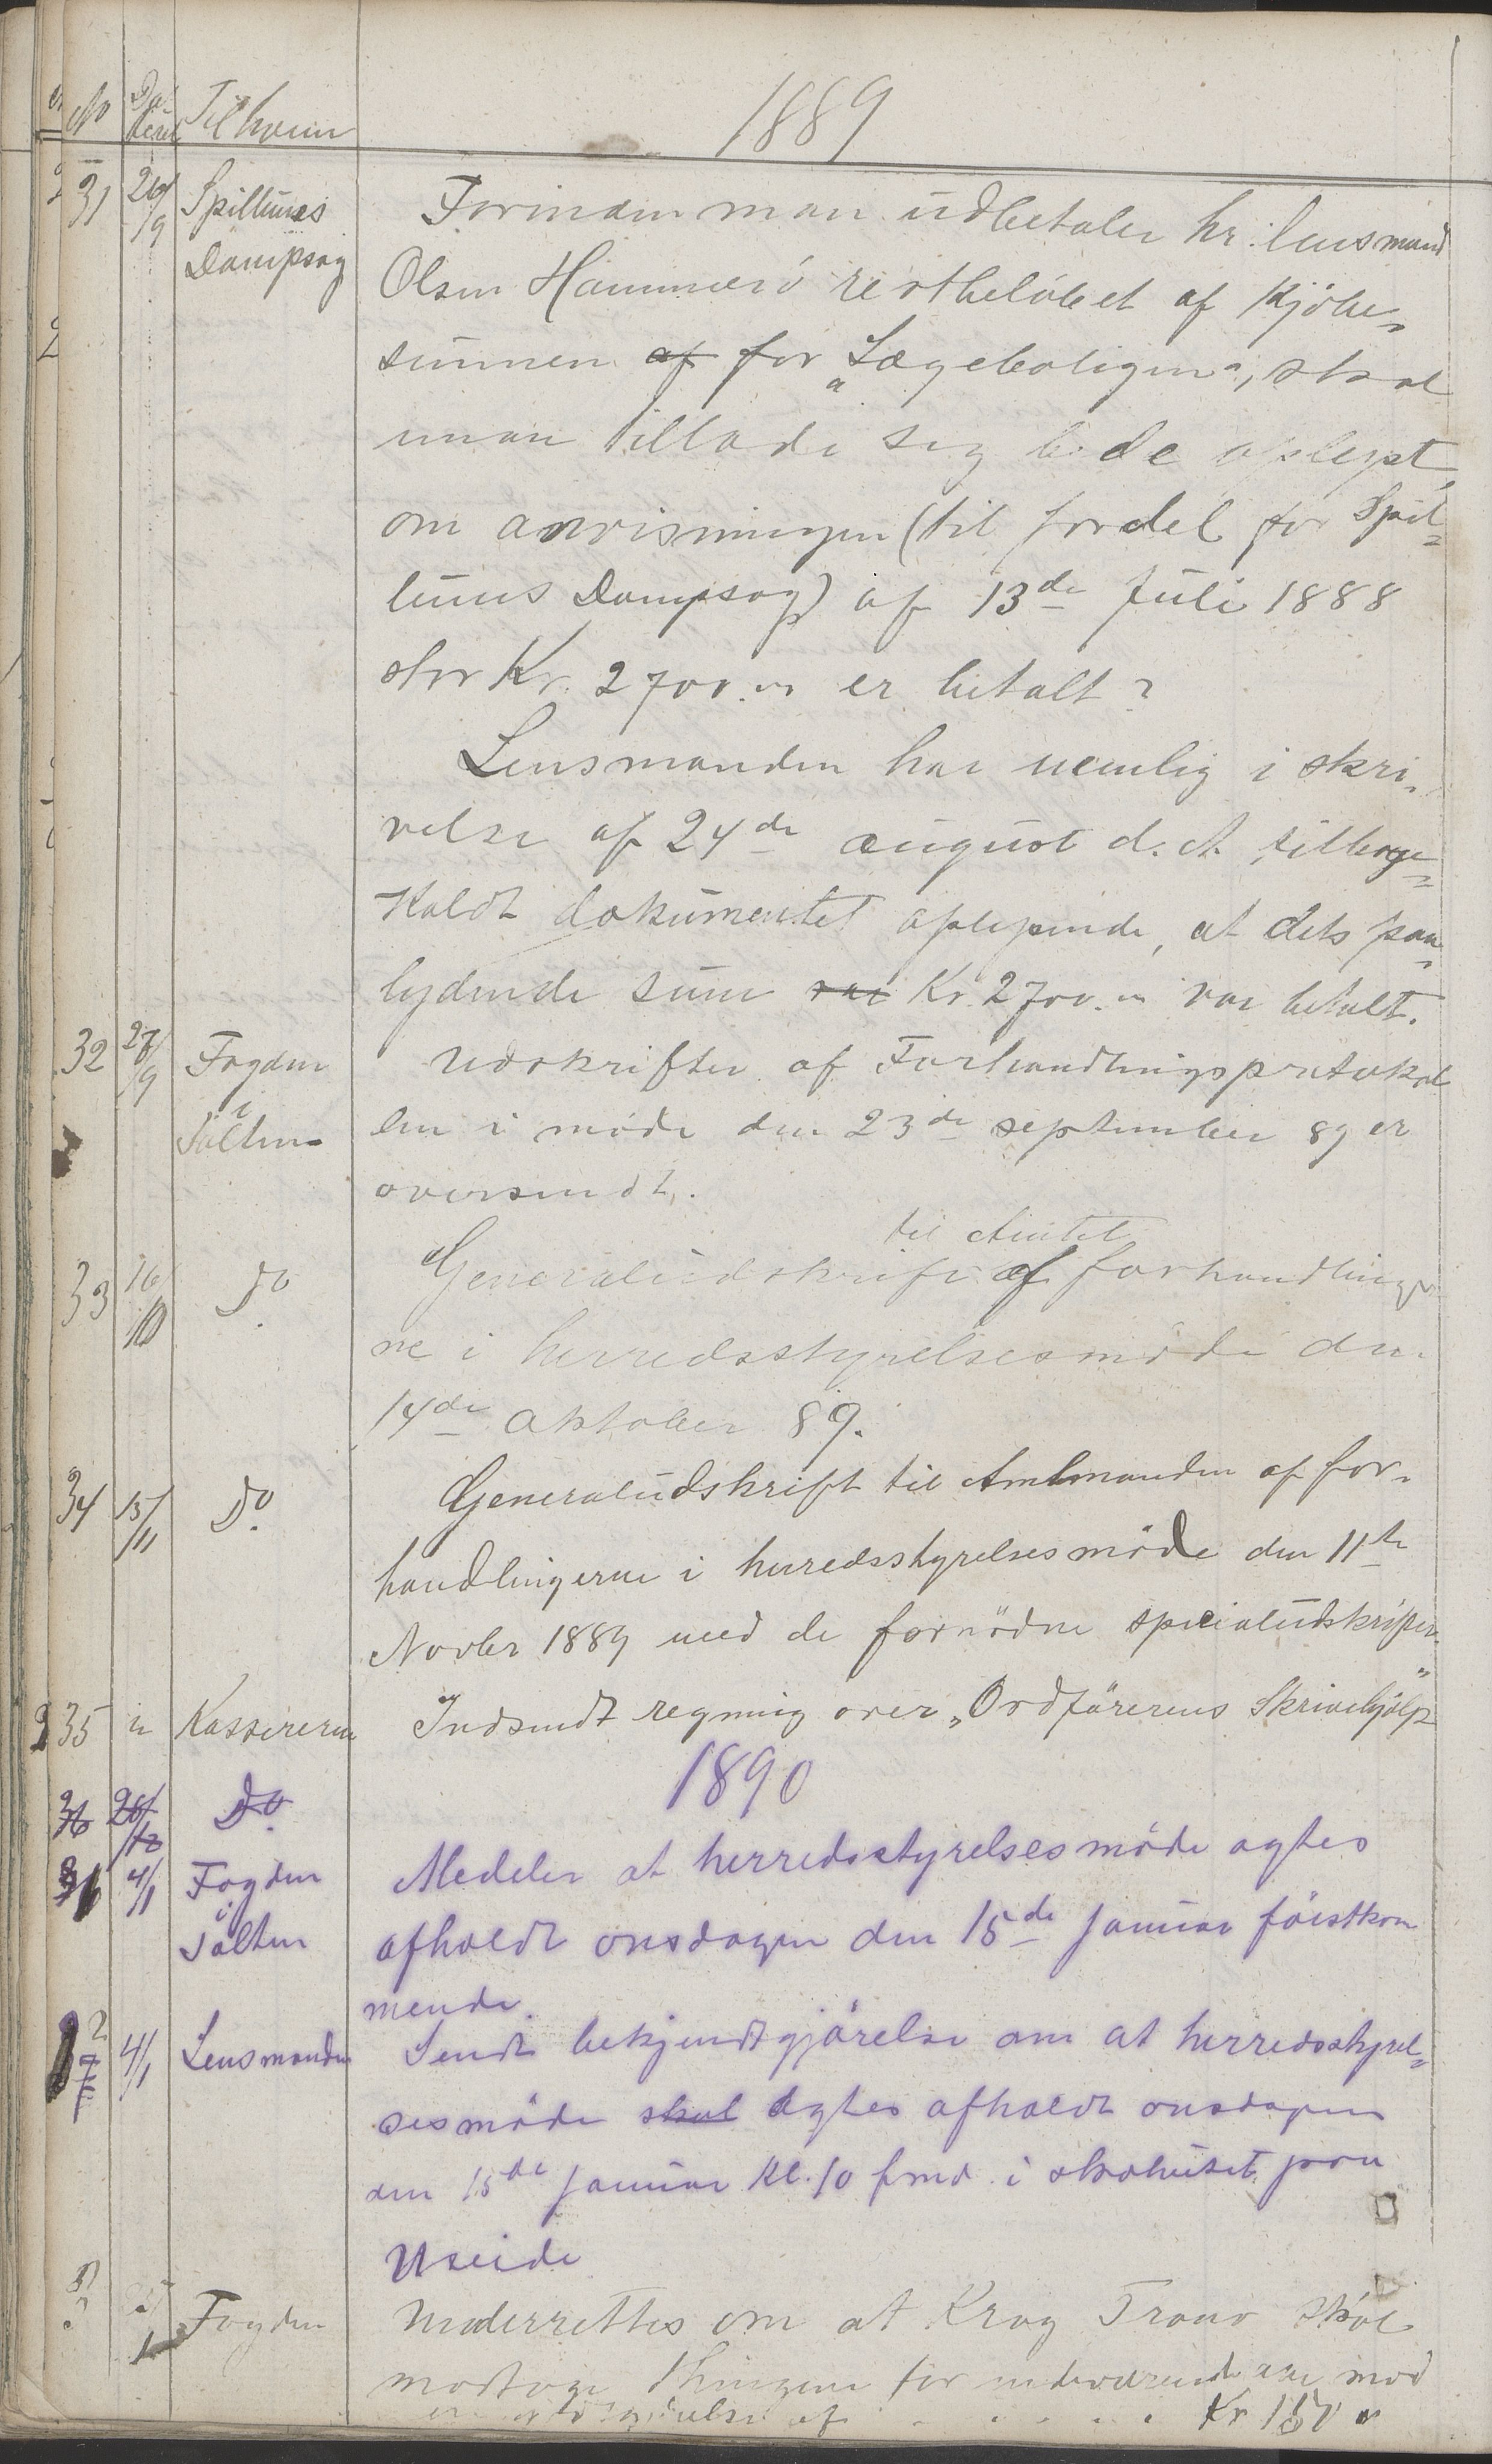 No Datum Til hvem 1889
31 26/9 Spillums Dampsag
Forinden man udbetaler hr. lensmand
Olsen Hammerö restbelöbet af Kjöbe-
summen af for "Lægeboligen", skal
man tillade sig bede oplyst,
om anvisningen (til fordel for Spil-
lums Dampsag) af 13de Juli 1888
stor Kr. 2700.00 er betalt?
Lensmanden har nemlig i skri-
velse af 24de august d. A. tilbage-
kaldt dokumentet oplysende, at dets paa-
lydende sum var Kr. 2700.00 var betalt.
32 27/9 Fogden i Salten
Udskrifter af Forhandlingsprotokol
len i möde den 23de september 89 er
oversendt.
33 16/10 Do.
til Amtet
Generaludskrift af forhandlinger
ne i herredsstyrelsesmöde den
14de oktober 89.
34 15/11 Do.
Generaludskrift til Amtmanden af for-
handlingerne i herredsstyrelsesmöde den 11te
Novbr 1889 med de fornödne specialudskrifter
35 " Kassereren
Indsendt regning over "Ordförerens Skrivehjælp"
1890
36 28/12 Do.
36 4/1 Fogden i Salten
Meddeler at herredsstyrelsesmöde agtes
afholdt onsdagen den 15de Januar förstkom
mende.
4/1 Lensmanden
Sendt bekjendtgjörelse om at herredsstyrel-
sesmöde skal agtes afholdt onsdagen
den 15de Januar kl. 10 fmd. i skolhuset paa
Useide
Fogden
Underrettes om at Krag Tranö skal
modtage Thingene for indeværende aar mod
en af Kr 150